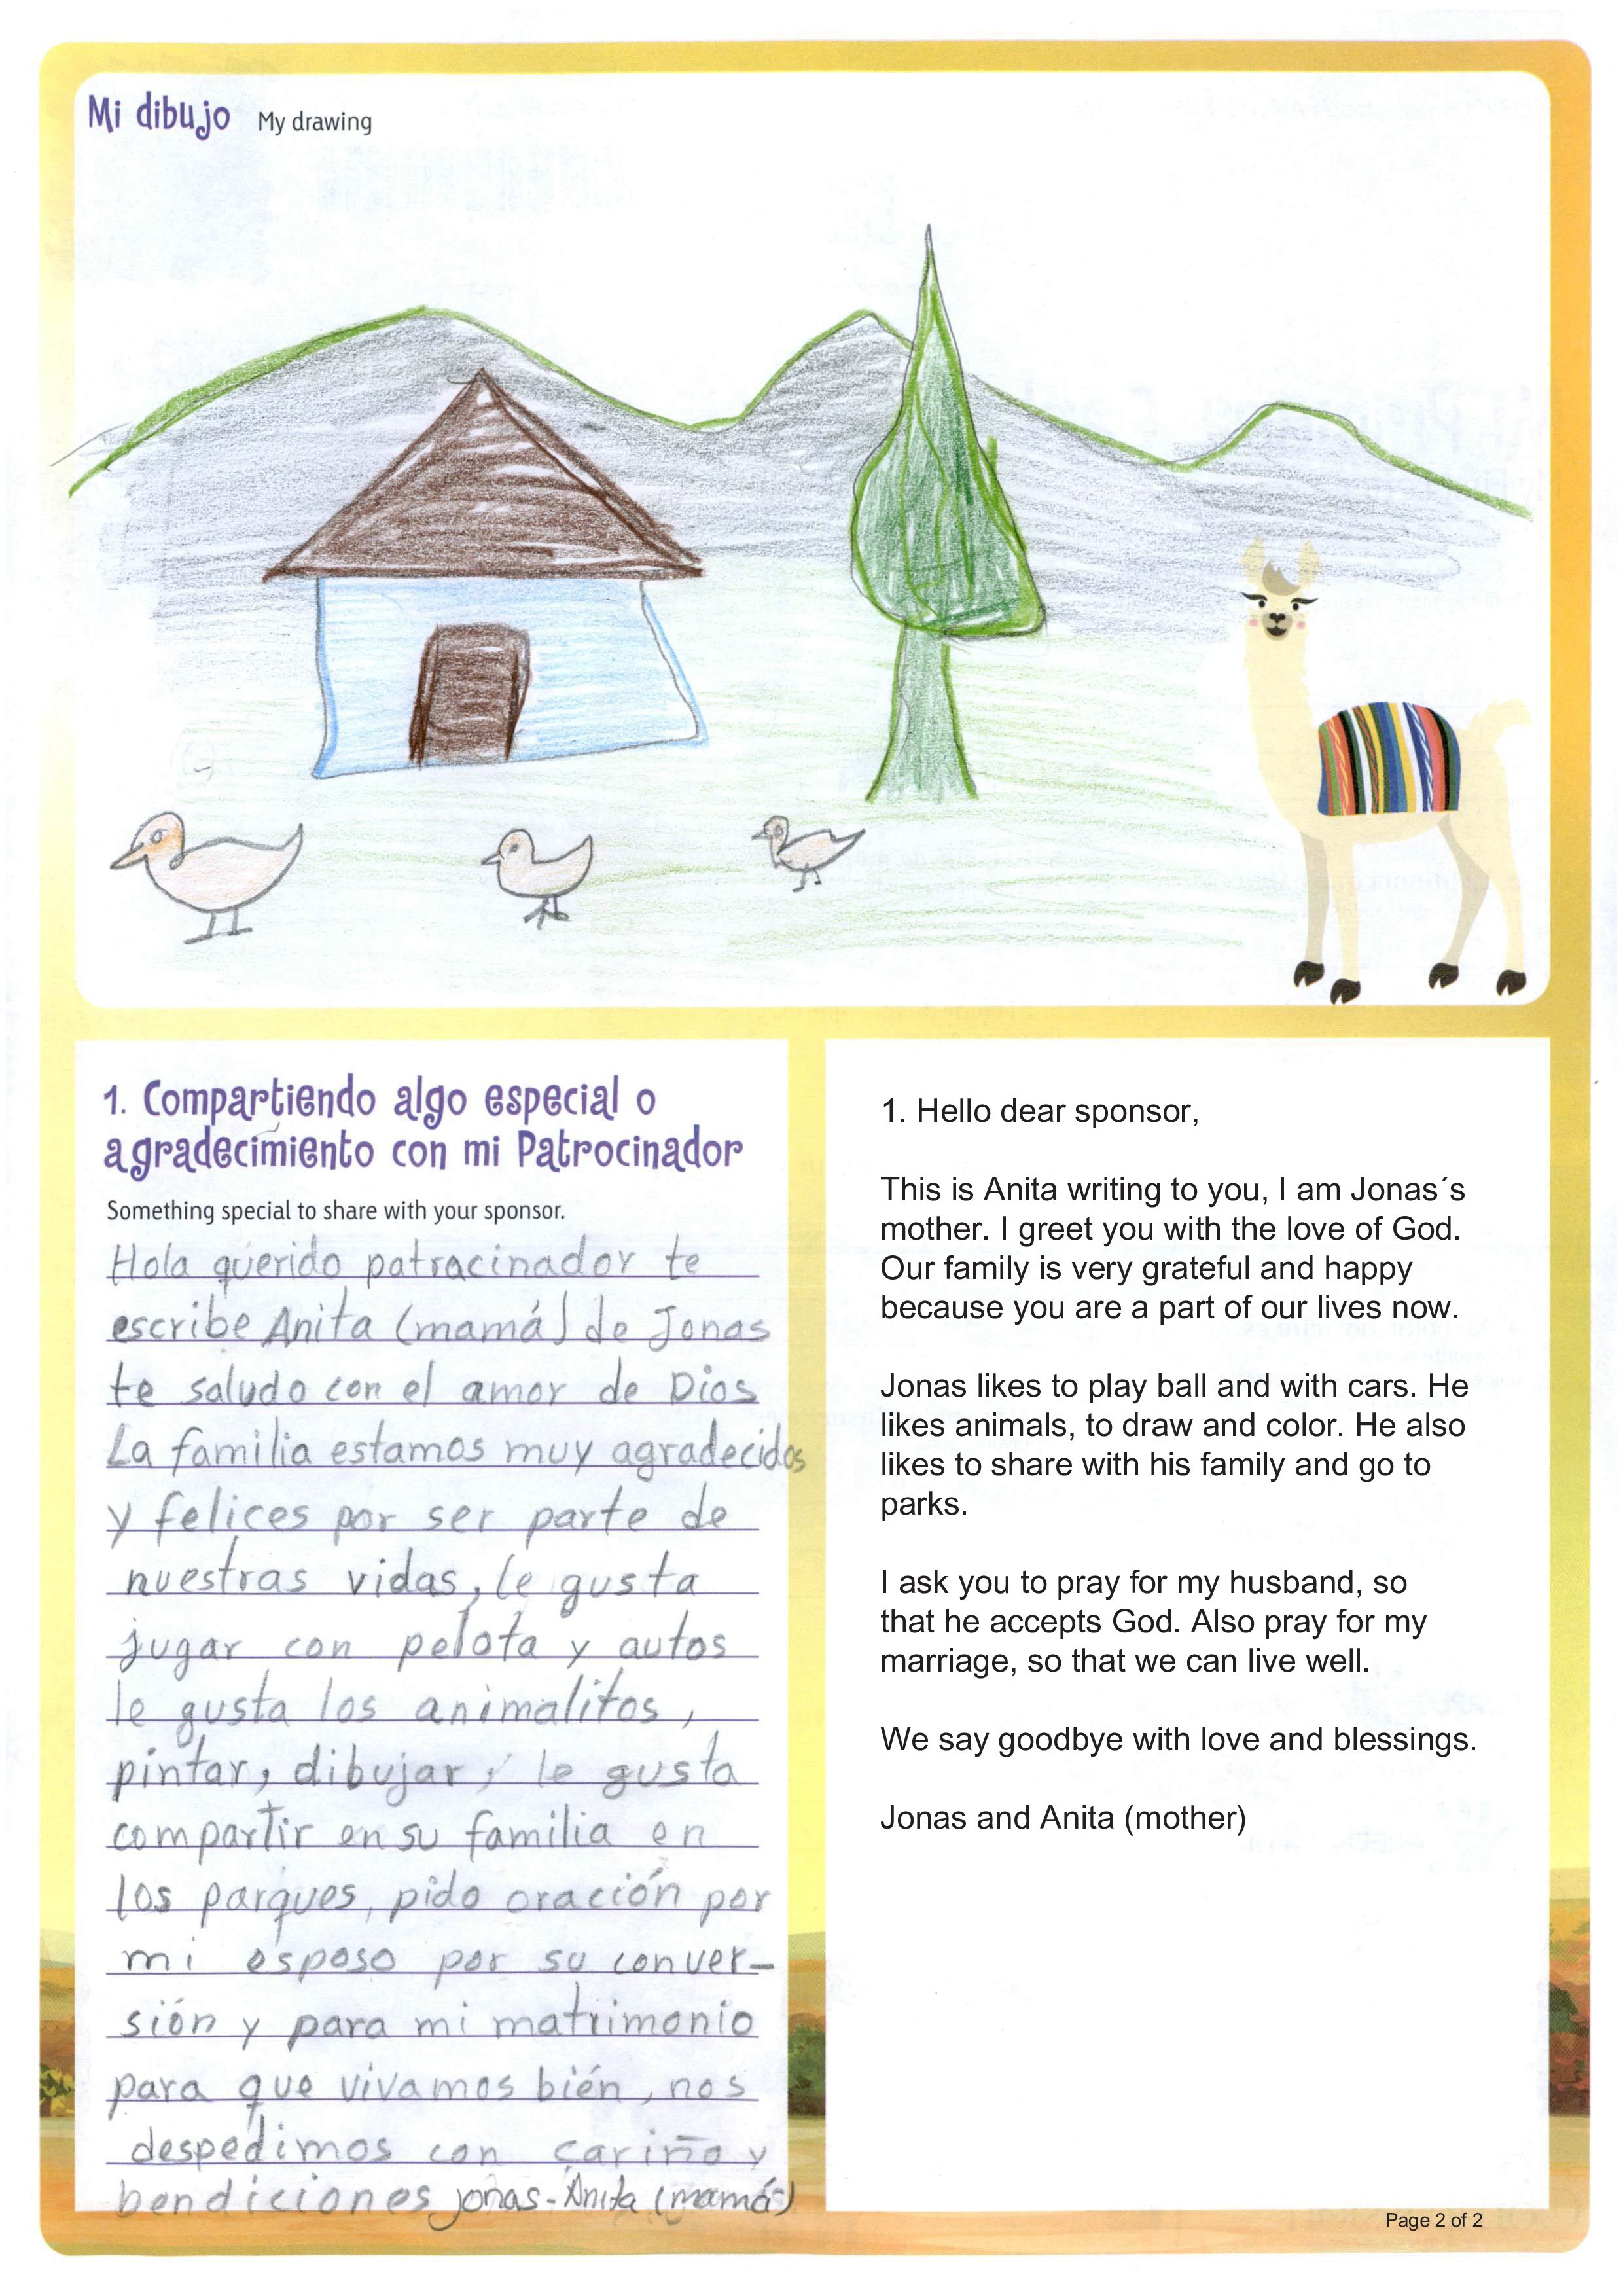 Mi dibujo My drawing
1. Compartiendo algo especial o
agradecimiento con mi Patrocinador
Something special to share with your sponsor.
Hola querido patracinador te
escribe Anita (mamá) de Jonas
te saludo con el amor de Dios
La familia estamos muy agradecidos
y felices por ser parte de
nuestras vidas, le gusta
jugar con pelota y autos
le gusta los animalitos,
pintar, dibujar, le gusta
compartir en su familia en
los parques, pido oración por
mi esposo por su conver-
sión y para mi matrimonio
para que vivamos bién, nos
despedimos con cariño y
bendiciones jonas - Anita (mamá)
1. Hello dear sponsor,
This is Anita writing to you, I am Jonas´s
mother. I greet you with the love of God.
Our family is very grateful and happy
because you are a part of our lives now.
Jonas likes to play ball and with cars. He
likes animals, to draw and color. He also
likes to share with his family and go to
parks.
I ask you to pray for my husband, so
that he accepts God. Also pray for my
marriage, so that we can live well.
We say goodbye with love and blessings.
Jonas and Anita (mother)
Page 2 of 2